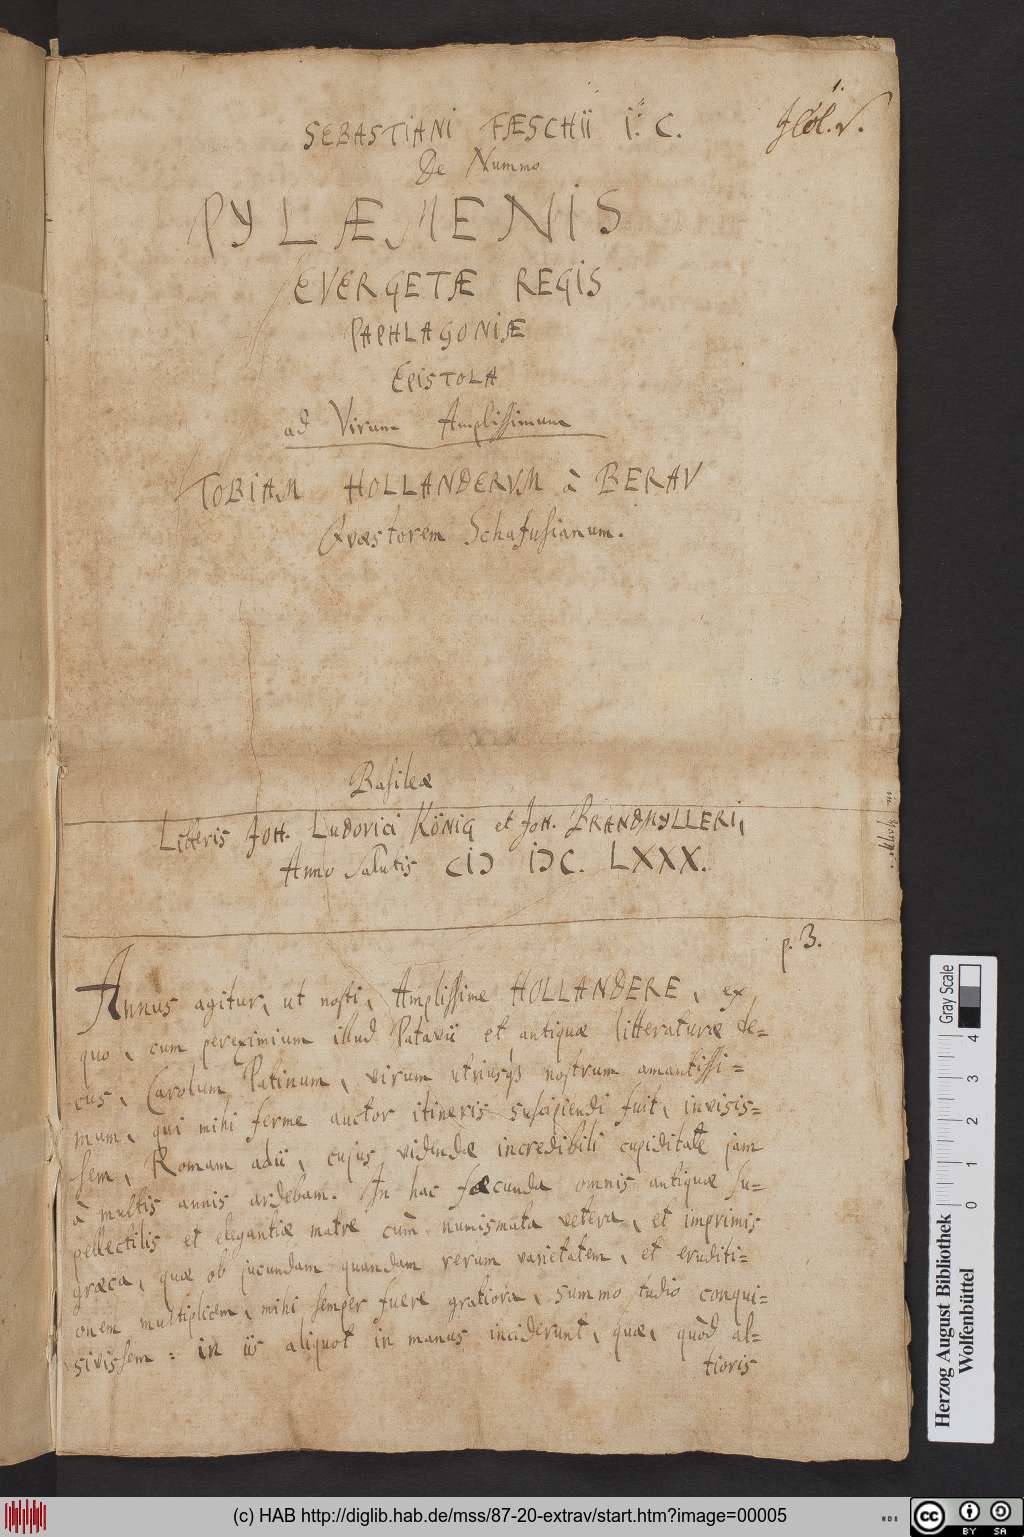 1.
SEBASTIANI FÆSCHII I. C.
De Nummo
PYLÆMENIS
EVERGETÆ REGIS
PAPHLAGONIÆ
EPISTOLA
ad Virum Amplissimum
TOBIAM HOLLANDERVM à BERAV
Qvæstorem Schafusianum.
Basileæ
Literis JOH. Ludovici KÖNIG et JOH. BRANDMYLLERI,
Anno Salutis CIƆ IƆC. LXXX.
p. 3.
Annus agitur, ut nosti, Amplissime HOLLANDERE, ex
quo, cum pereximium illud Patavii et antiquæ litteraturæ de=
cus, Carolum Patinum, virum utriusq3 nostrum amantissi=
mum, qui mihi ferme auctor itineris suscipiendi fuit, invisis=
sem, Romam adii, cujus videndæ incredibili cupiditate jam
à multis annis ardebam. In hac fæcunda omnis antiquæ su=
pellectilis et elegantiæ matre cum numismata vetera, et imprimis
græca, quæ ob jucundam quandam rerum varietatem, et eruditi=
onem multiplicem, mihi semper fuere gratiora, summo studio conqui=
sivissem: in iis aliquot in manus inciderunt, quæ, quòd al=
tioris
Herzog August Bibliothek
Wolfenbüttel
Gray Scale
0 1 2 3 4
(c) HAB http://diglib.hab.de/mss/87-20-extrav/start.htm?image=00005
cc BY SA